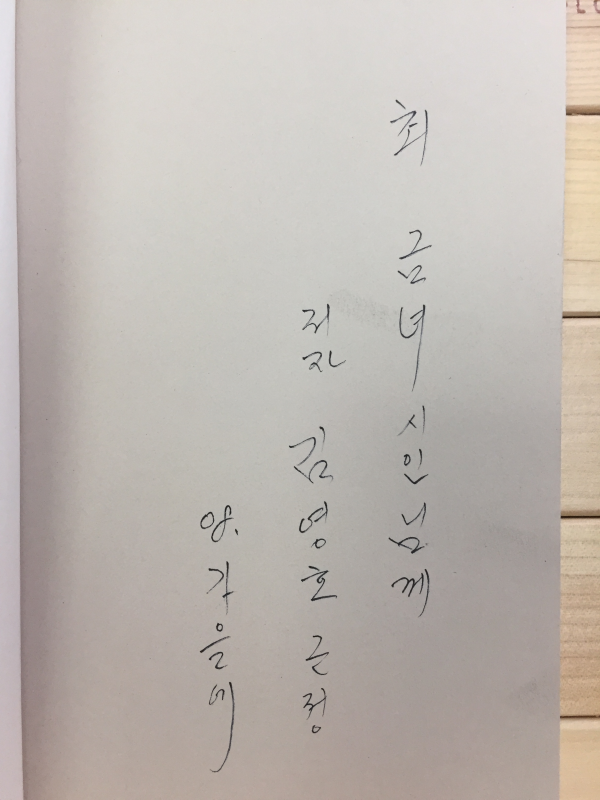 최 금녀 시인님께
저자 김영호 근정
08. 가을에